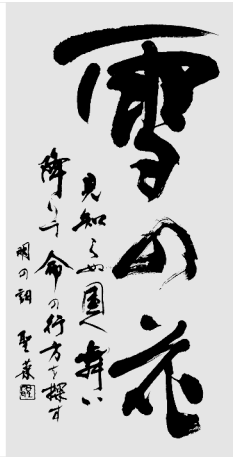 雪の花
見知らぬ国へ舞い
降りて命の行方を探す